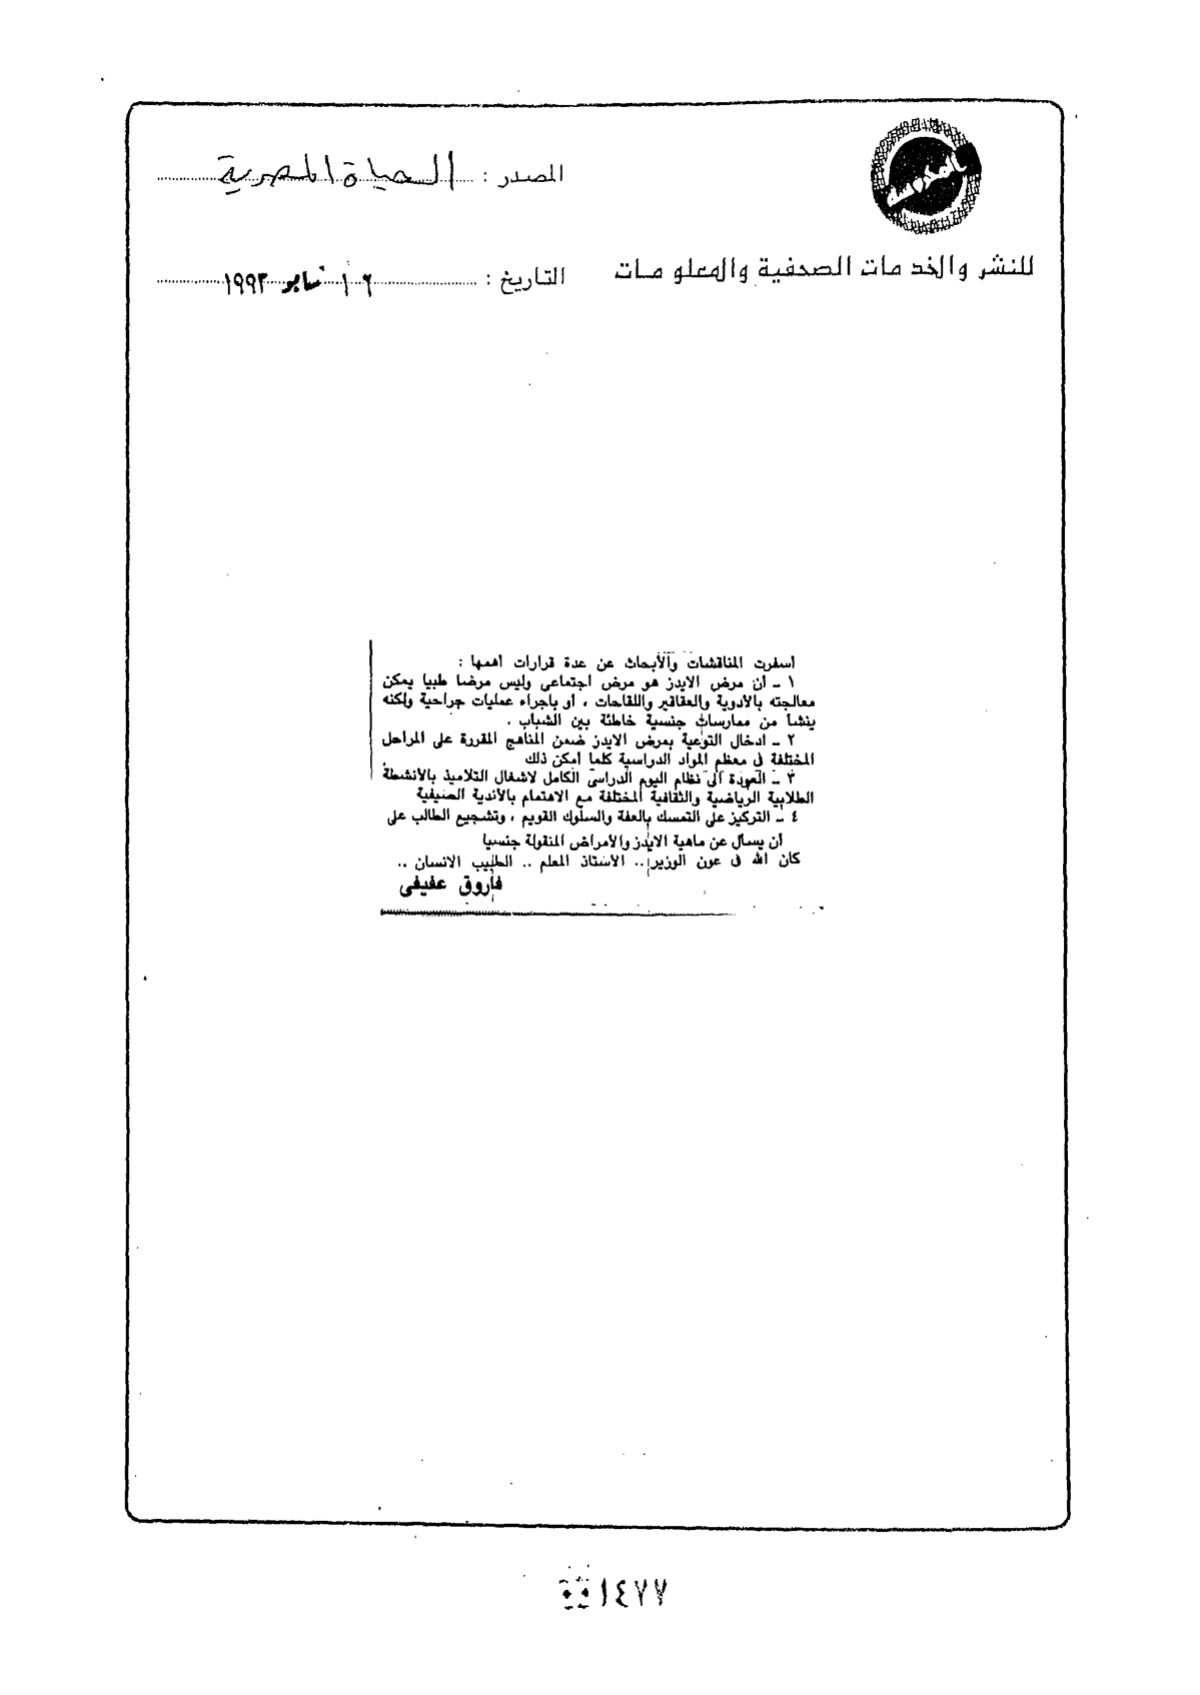 المصدر : الحياة المصرية
للنشر والخدمات الصحفية والمعلومات
التاريخ : ١٩٩٣
أسفرت المناقشات والأبحاث عن عدة قرارات أهمها :
١ ـ أن مرض الايدز هو مرض اجتماعى وليس مرضا طبيا يمكن
معالجته بالأدوية والعقاقير واللقاحات ، أو باجراء عمليات جراحية ولكنه
ينشأ من ممارسات جنسية خاطئة بين الشباب .
٢ ـ ادخال التوعية بمرض الايدز ضمن المناهج المقررة على المراحل
المختلفة فى معظم المواد الدراسية كلما أمكن ذلك
٣ ـ العودة الى نظام اليوم الدراسى الكامل لاشغال التلاميذ بالأنشطة
الطلابية الرياضية والثقافية المختلفة مع الاهتمام بالأندية الصيفية
٤ ـ التركيز على التمسك بالعفة والسلوك القويم ، وتشجيع الطالب على
أن يسأل عن ماهية الايدز والأمراض المنقولة جنسيا
كان الله فى عون الوزير .. الأستاذ المعلم .. الطبيب الانسان ..
فاروق عفيفى